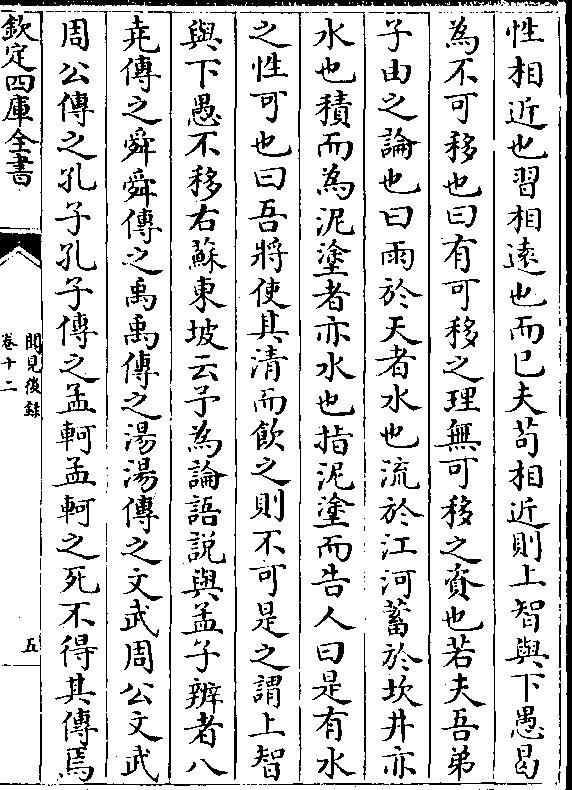 性相近也習相遠也而已夫苟相近則上智與下愚曷
為不可移也曰有可移之理無可移之資也若夫吾弟
子由之論也曰雨於天者水也流於江河蓄於坎井亦
水也積而為泥塗者亦水也指泥塗而告人曰是有水
之性可也曰吾將使其清而飲之則不可是之謂上智
與下愚不移右蘇東坡云予為論語説與孟子辨者八
堯傳之舜舜傳之禹禹傳之湯湯傳之文武周公文武
周公傳之孔子孔子傳之孟軻孟軻之死不得其傳焉
欽定四庫全書
聞見後録
卷十二
五